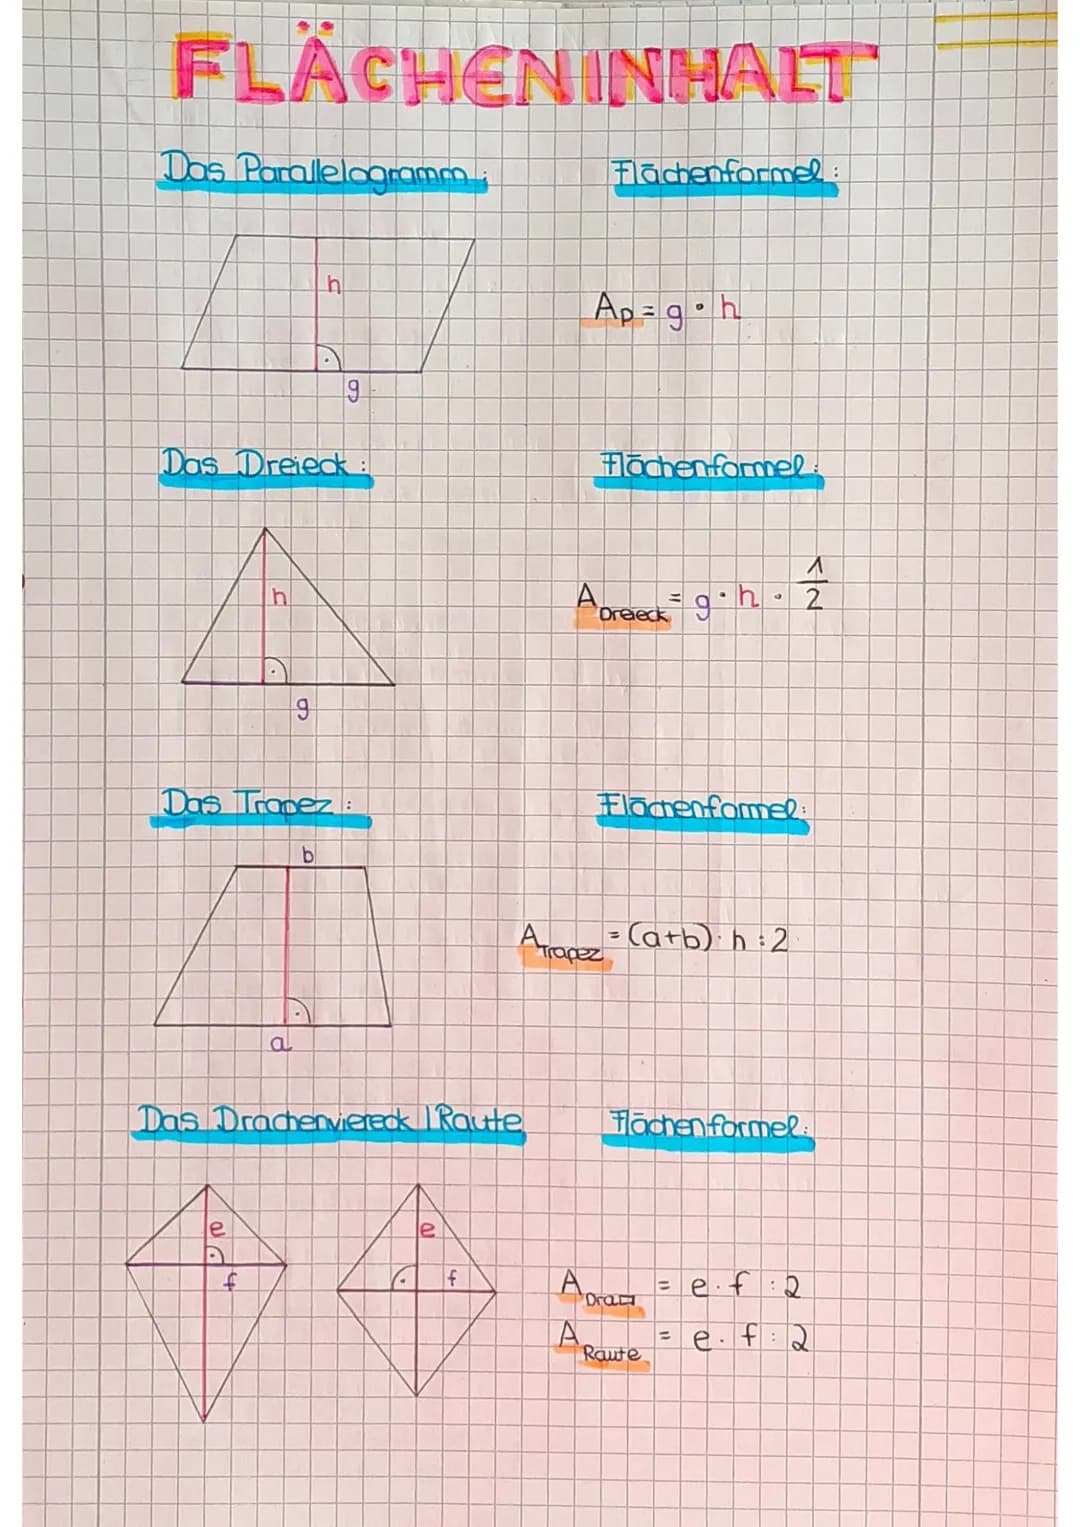 FLÄCHENINHALT
Das Parallelogramm:
Flächenformel:
h
g
Ap = g · h
Das Dreieck:
Flächenformel:
h
g
A Dreieck = g · h · 1/2
Das Trapez:
Flächenformel:
b
a
A Trapez = (a+b) · h : 2
Das Drachenviereck | Raute
Flächenformel:
e
f
e
f
A = e · f : 2
A Raute = e · f : 2